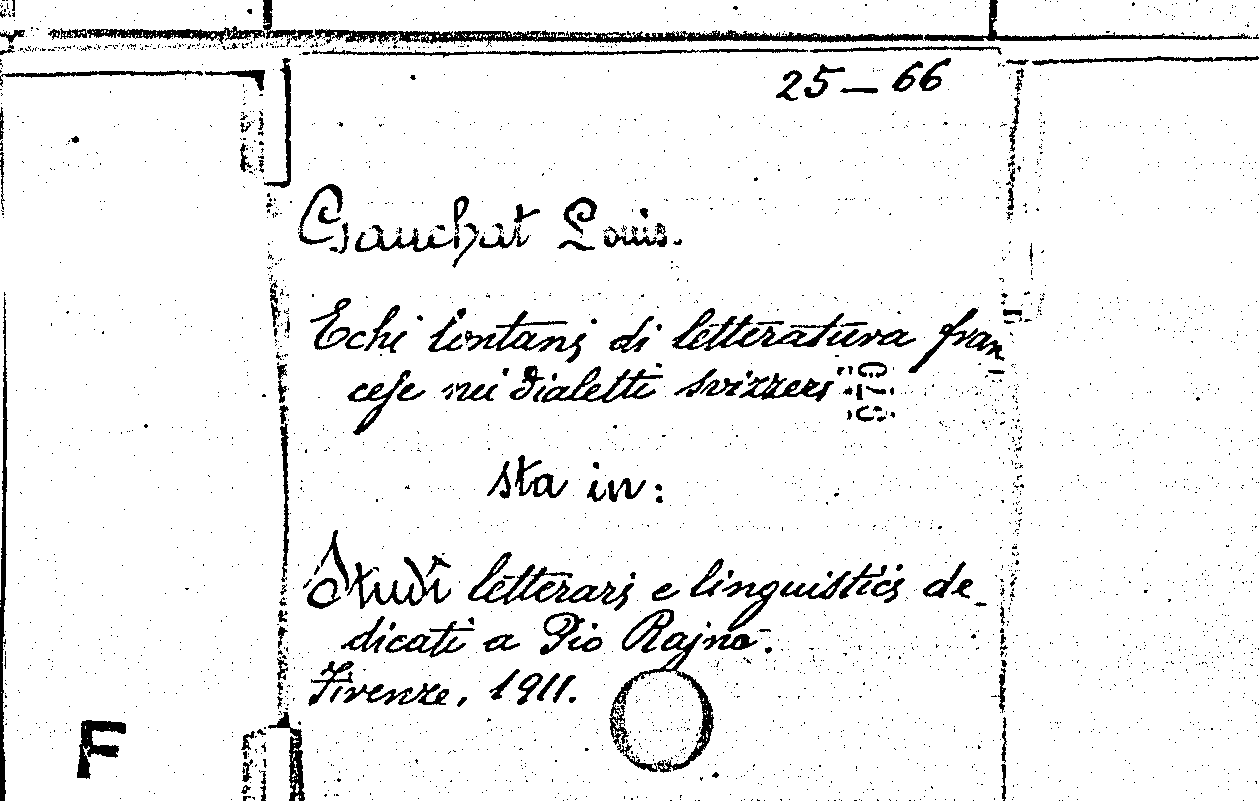 25 — 66
Gauchat Louis.
Echi lontani di letteratura fran-
cese nei dialetti svizzeri
sta in:
Studî letterari e linguistici de-
dicati a Pio Rajna.
Firenze, 1911.
F